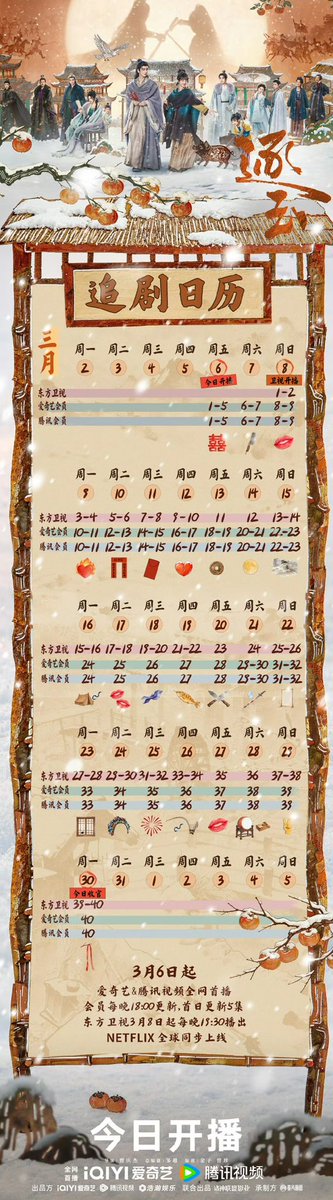 逐玉
追剧日历
三月
周一 周二 周三 周四 周五 周六 周日
2 3 4 5 6 7 8
今日开播 卫视开播
东方卫视 1-2
爱奇艺会员 1-5 6-7 8-9
腾讯会员 1-5 6-7 8-9
囍
周一 周二 周三 周四 周五 周六 周日
9 10 11 12 13 14 15
东方卫视 3-4 5-6 7-8 9-10 11 12 13-14
爱奇艺会员 10-11 12-13 14-15 16-17 18-19 20-21 22-23
腾讯会员 10-11 12-13 14-15 16-17 18-19 20-21 22-23
周一 周二 周三 周四 周五 周六 周日
16 17 18 19 20 21 22
东方卫视 15-16 17-18 19-20 21-22 23 24 25-26
爱奇艺会员 24 25 26 27 28 29-30 31-32
腾讯会员 24 25 26 27 28 29-30 31-32
周一 周二 周三 周四 周五 周六 周日
23 24 25 26 27 28 29
东方卫视 27-28 29-30 31-32 33-34 35 36 37-38
爱奇艺会员 33 34 35 36 37 38 39
腾讯会员 33 34 35 36 37 38 39
周一 周二 周三 周四 周五 周六 周日
30 31 1 2 3 4 5
今日收官
东方卫视 39-40
爱奇艺会员 40
腾讯会员 40
3月6日起
爱奇艺&腾讯视频全网首播
会员每晚18:00更新,首日更新5集
东方卫视3月8日起每晚19:30播出
NETFLIX 全球同步上线
今日开播
全网首播 iQIYI爱奇艺 腾讯视频
出品方 iQIYI爱奇艺 腾讯视频 联合出品 承制方